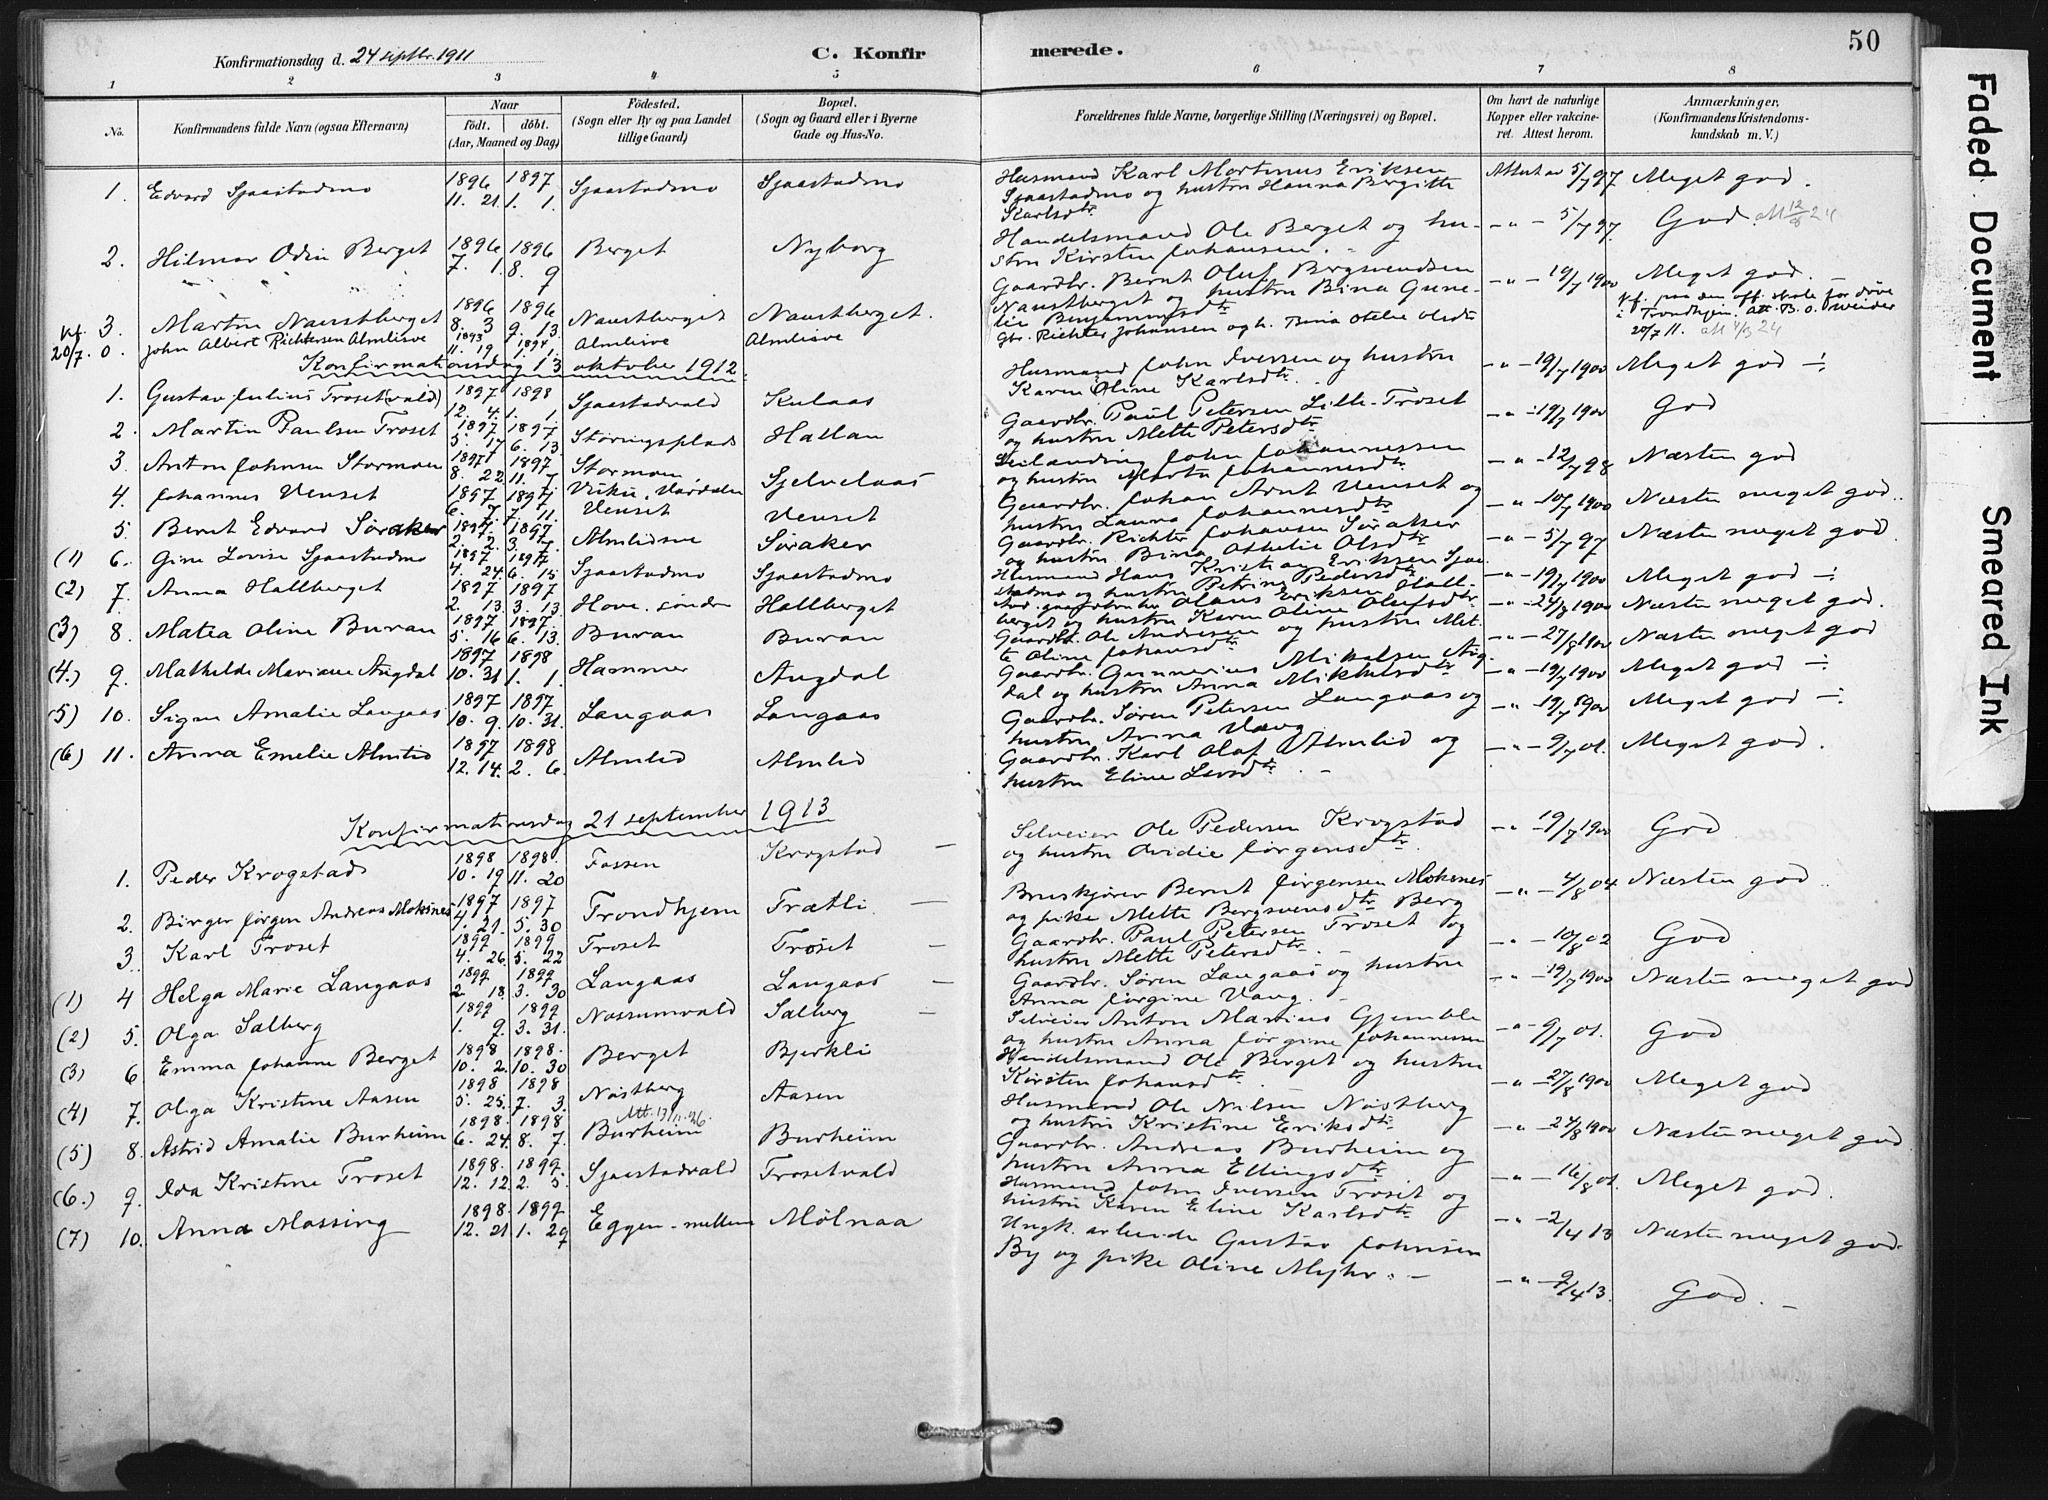 50
Konfirmationsdag d. 24 septbr. 1911
C. Konfirmerede.
1 2 3 4 5 6 7 8
No. Konfirmandens fulde Navn (ogsaa Efternavn) Naar født. døbt. (Aar, Maaned og Dag) Fødested. (Sogn eller By og paa Landet tillige Gaard) Bopæl. (Sogn og Gaard eller i Byerne Gade og Hus-No. Forældrenes fulde Navne, borgerlige Stilling (Næringsvei) og Bopæl. Om havt de naturlige Kopper eller vakcineret. Attest herom. Anmærkninger. (Konfirmandens Kristendomskundskab m. V.)
1. Edvard Sjaastadmo 1896 11. 21. 1897 1. 1. Sjaastadmo Sjaastadmo Husmand Karl Martinus Eriksen Sjaastadmo og hustru Hanna Bergitte Karlsdtr. Attest av 5/7 97 Meget god.
2. Hilmar Odin Berget 1896 7. 1. 1896 8. 9 Berget Nyborg Handelsmand Ole Berget og hustru Kirsten Johansen. -"- 5/7 97. God.
3. Martin Naustberget 1896 8. 3 1896 9. 13 Naustberget Naustberget. Gaardbr. Bernt Oluf Bergsvendsen Naustberget og hustru Bina Gunelie Benjaminsdtr -"- 19/7 1900 Meget god.
kf. 20/7. 0. John Albert Richtersen Almlisve 1893 11. 19 1894 1. 1. Almlisve Almlisve Gbr. Richter Johansen og h. Bina Otelie Olsdtr kf. paa den off. skole for døve i Trondhjem. att. B. O. 20/7 11.
Konfirmationsdag 13 oktober 1912.
1. Gustav Julius Trøset(vald) 1897 12. 4. 1898 1. 1 Sjaastadvald Kulaas Husmand John Iversen og hustru Karen Oline Karlsdtr. -"- 19/7 1900 Meget god -:
2. Martin Paulsen Trøset 1897 5. 17 1897 6. 13. Støringsplads Hallan Gaardbr. Paul Petersen Lille-Trøset og hustru Mette Petersdtr -"- 19/7 1900 God
3. Anton Johnsen Stormoen 1897 8. 22 1897 11. 7 Stormoen Sjelvelaas John Johannessen og hustru Marta Johannesdtr -"- 12/7 98 Næsten god
4. Johannes Venset 1897 6. 7. 1897 7. 11. Vuku, Værdalen Venset Venset Gaardbr. Johan Arnt Venset og hustru Laura Johannesdtr -"- 10/7 1900 Næsten meget god.
5. Bernt Edvard Søraker 1897. 2. 2. 1897. 3. 7. Almlidsve Søraker Gaardbr. Richter Johansen Søraker og hustru Bina Othelie Olsdtr -"- 5/7 97 Næsten meget god
(1) 6. Gina Lovise Sjaastadmo 1897 4. 24. 1897 6. 15 Sjaastadmo Sjaastadmo Husmand Hans Kristian Eriksen Sjaastadmo og hustru Petrine Pedersdtr -"- 19/7 1900 Meget god -:
(2) 7. Anna Hallberget 1897 2. 13. 1897 3. 13. Hove. søndre Hallberget Olaus Eriksen Hallberget og hustru Karen Oline Olufsdtr. -"- 24/8 1900 Næsten meget god.
(3) 8. Matea Oline Buran 1897 5. 16 1897. 6. 13. Buran Buran Gaardbr. Ole Andresen og hustru Mette Oline Johansdtr -"- 27/8 1900 Næsten meget god
(4.) 9. Mathilde Mariane Augdal 1897 10. 31 1898 1. 1. Hammer Augdal Gaardbr. Gunnerius Mikalsen Augdal og hustru Anna Mikkelsdtr -"- 19/7 1900 Meget god -:
(5) 10. Signe Amalie Langaas 1897 10. 9. 1897 10. 31. Langaas Langaas Gaardbr. Søren Petersen Langaas og hustru Anna Vang -"- 19/7 1900 Meget god -:
(6) 11. Anna Emelie Almlid 1897 12. 14. 1898 2. 6. Almlid Almlid Gaardbr. Karl Olaf Almlid og hustru Eline Larsdtr. -"- 9/7 01. Meget god.
Konfirmationsdag 21 september 1913
1. Peder Krogstad 1898 10. 19 1898. 11. 20 Fossen Krogstad Selveier Ole Pedersen Krogstad og hustru Ovidie Jørgensdtr. -"- 19/7 1900 God
2. Birger Jørgen Andreas Moksnes 1897 4. 21. 1897 5. 30 Trondhjem Trætli. Bruskjører Bernt Jørgensen Moksnes og pike Mette Bergsvensdtr Berg -"- 4/8 04 Næsten god
3. Karl Trøset 1899 4. 26. 1899 5. 22 Trøset Trøset Gaardbr. Paul Petersen Trøset og hustru Mette Petersdtr. -"- 10/8 02 God
(1) 4 Helga Marie Langaas 1899 2 18. 1899 3. 30 Langaas Langaas Gaardbr. Søren Langaas og hustru Anna Jørgine Vang. -"- 19/7 1900 Næsten meget god
(2) 5. Olga Salberg 1899 1. 9. 1899 3. 31. Nossumvald Salberg Selveier Anton Marius Gjemble og hustru Anna Jørgine Johannessen -"- 9/7 01. God
(3) 6 Emma Johanne Berget 1898 10. 2. 1898. 10. 30 Berget Bjerkli Handelsmand Ole Berget og hustru Kirsten Johansdtr. -"- 27/8 1900 Meget god
(4) 7. Olga Kristine Aasen 1898 5. 25. 1898 7. 3. Nøstberg Aasen Husmand Ole Nilsen Nøstberg og hustru Kristine Eriksdtr -"- 27/8 1900 Næsten meget god
(5) 8. Astrid Amalie Burheim 1898. 6. 24. 1898 8. 7. Att. 17/11. 26. Burheim Burheim Gaardbr. Andreas Burheim og hustru Anna Ellingsdtr -"- 16/8 01. Meget god.
(6.) 9. Ida Kristine Trøset 1898. 12. 12. 1899 2. 5. Sjaastadvald Trøsetvald Husmand John Iversen Trøset og hustru Karen Eline Karlsdtr -"- 2/4 13 Næsten meget god.
(7) 10. Anna Mossing 1898. 12. 21 1899 1. 29 Eggen-mellem Mølnaa Ungk. arbeide Gustav Johnsen By og pike Oline Myhr. -"- 9/4 13. God.
Faded Document
Smeared Ink